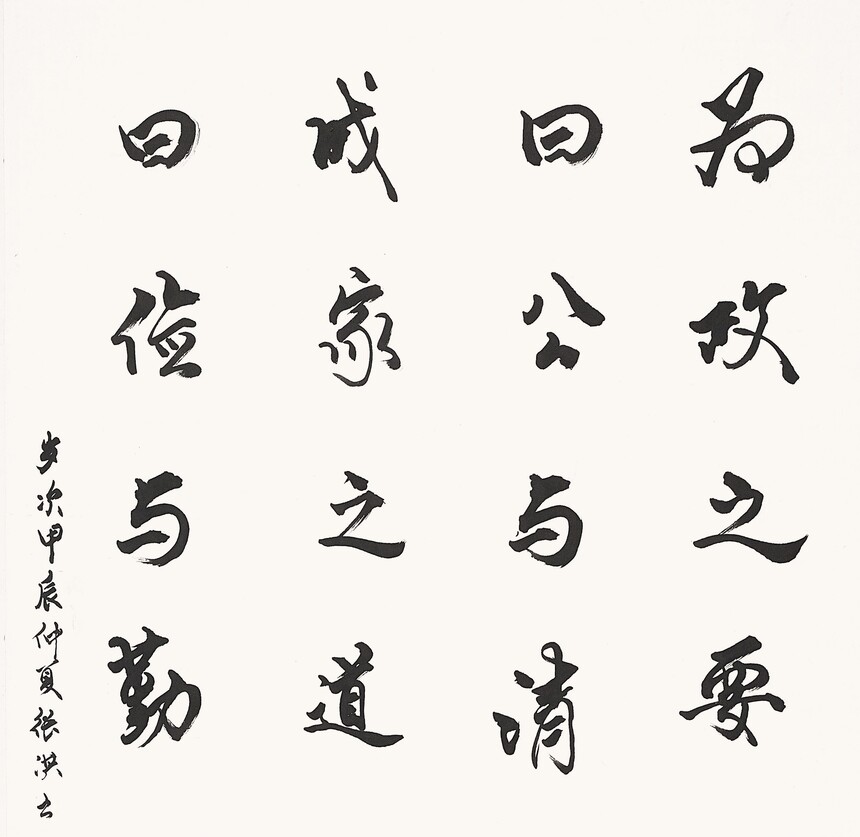 为政之要
曰公与清
成家之道
曰俭与勤
岁次甲辰仲夏张洪书